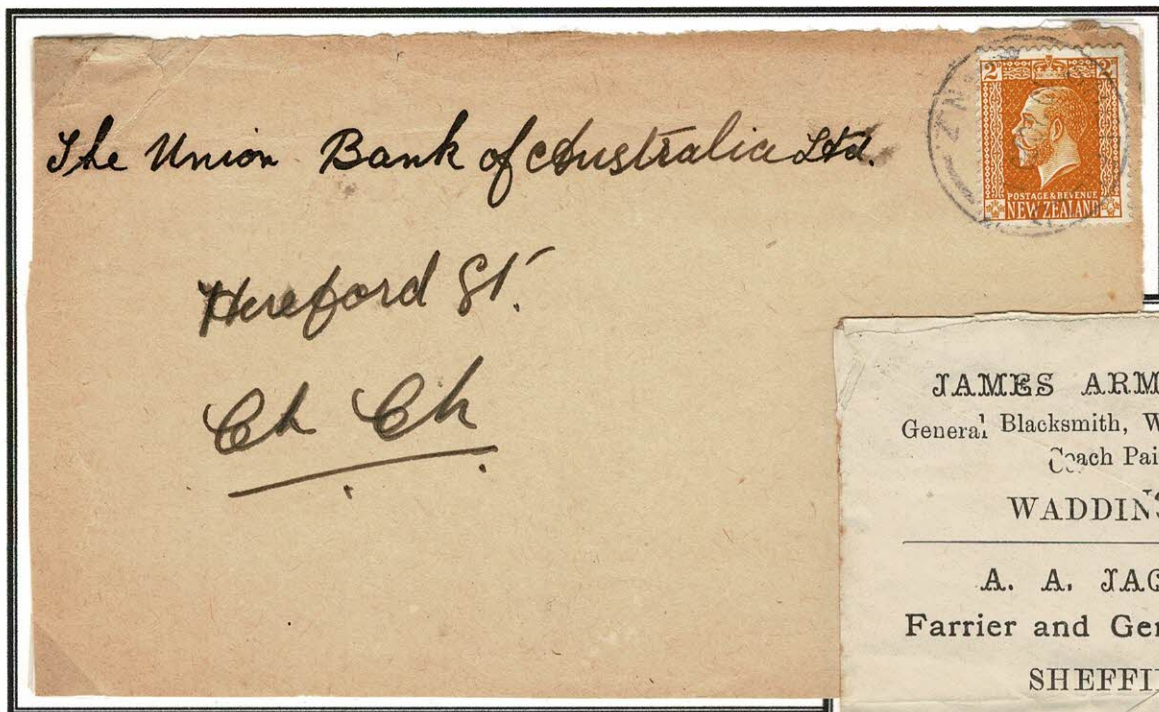 The Union Bank of Australia Ltd.
Hereford St.
Ch Ch
2 2
POSTAGE & REVENUE
NEW ZEALAND
N.Z
JAMES
General Blacksmith,
Coach
A. A.
Farrier and